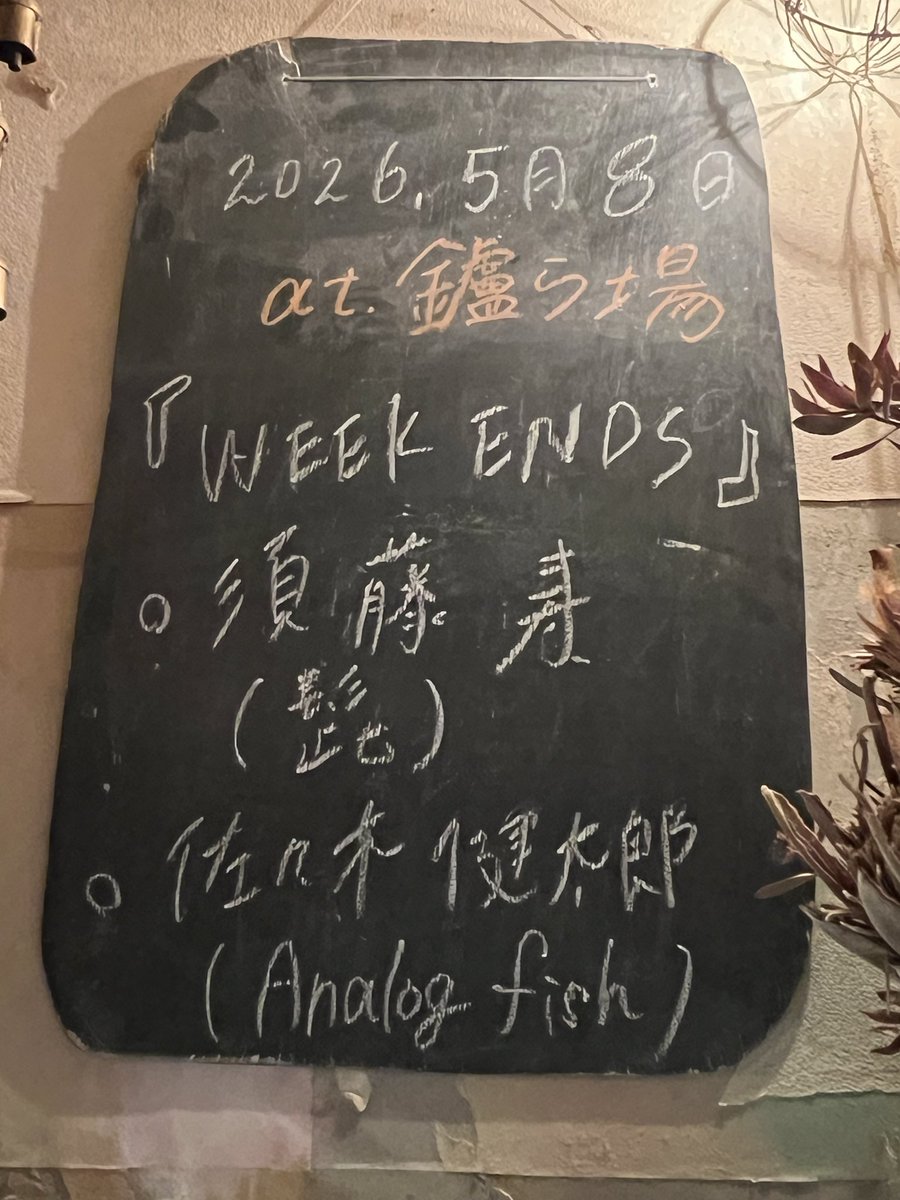 2026.5月8日
at.鑪ら場
『WEEK ENDS』
○須藤寿
(髭)
○佐々木健太郎
(Analog fish)